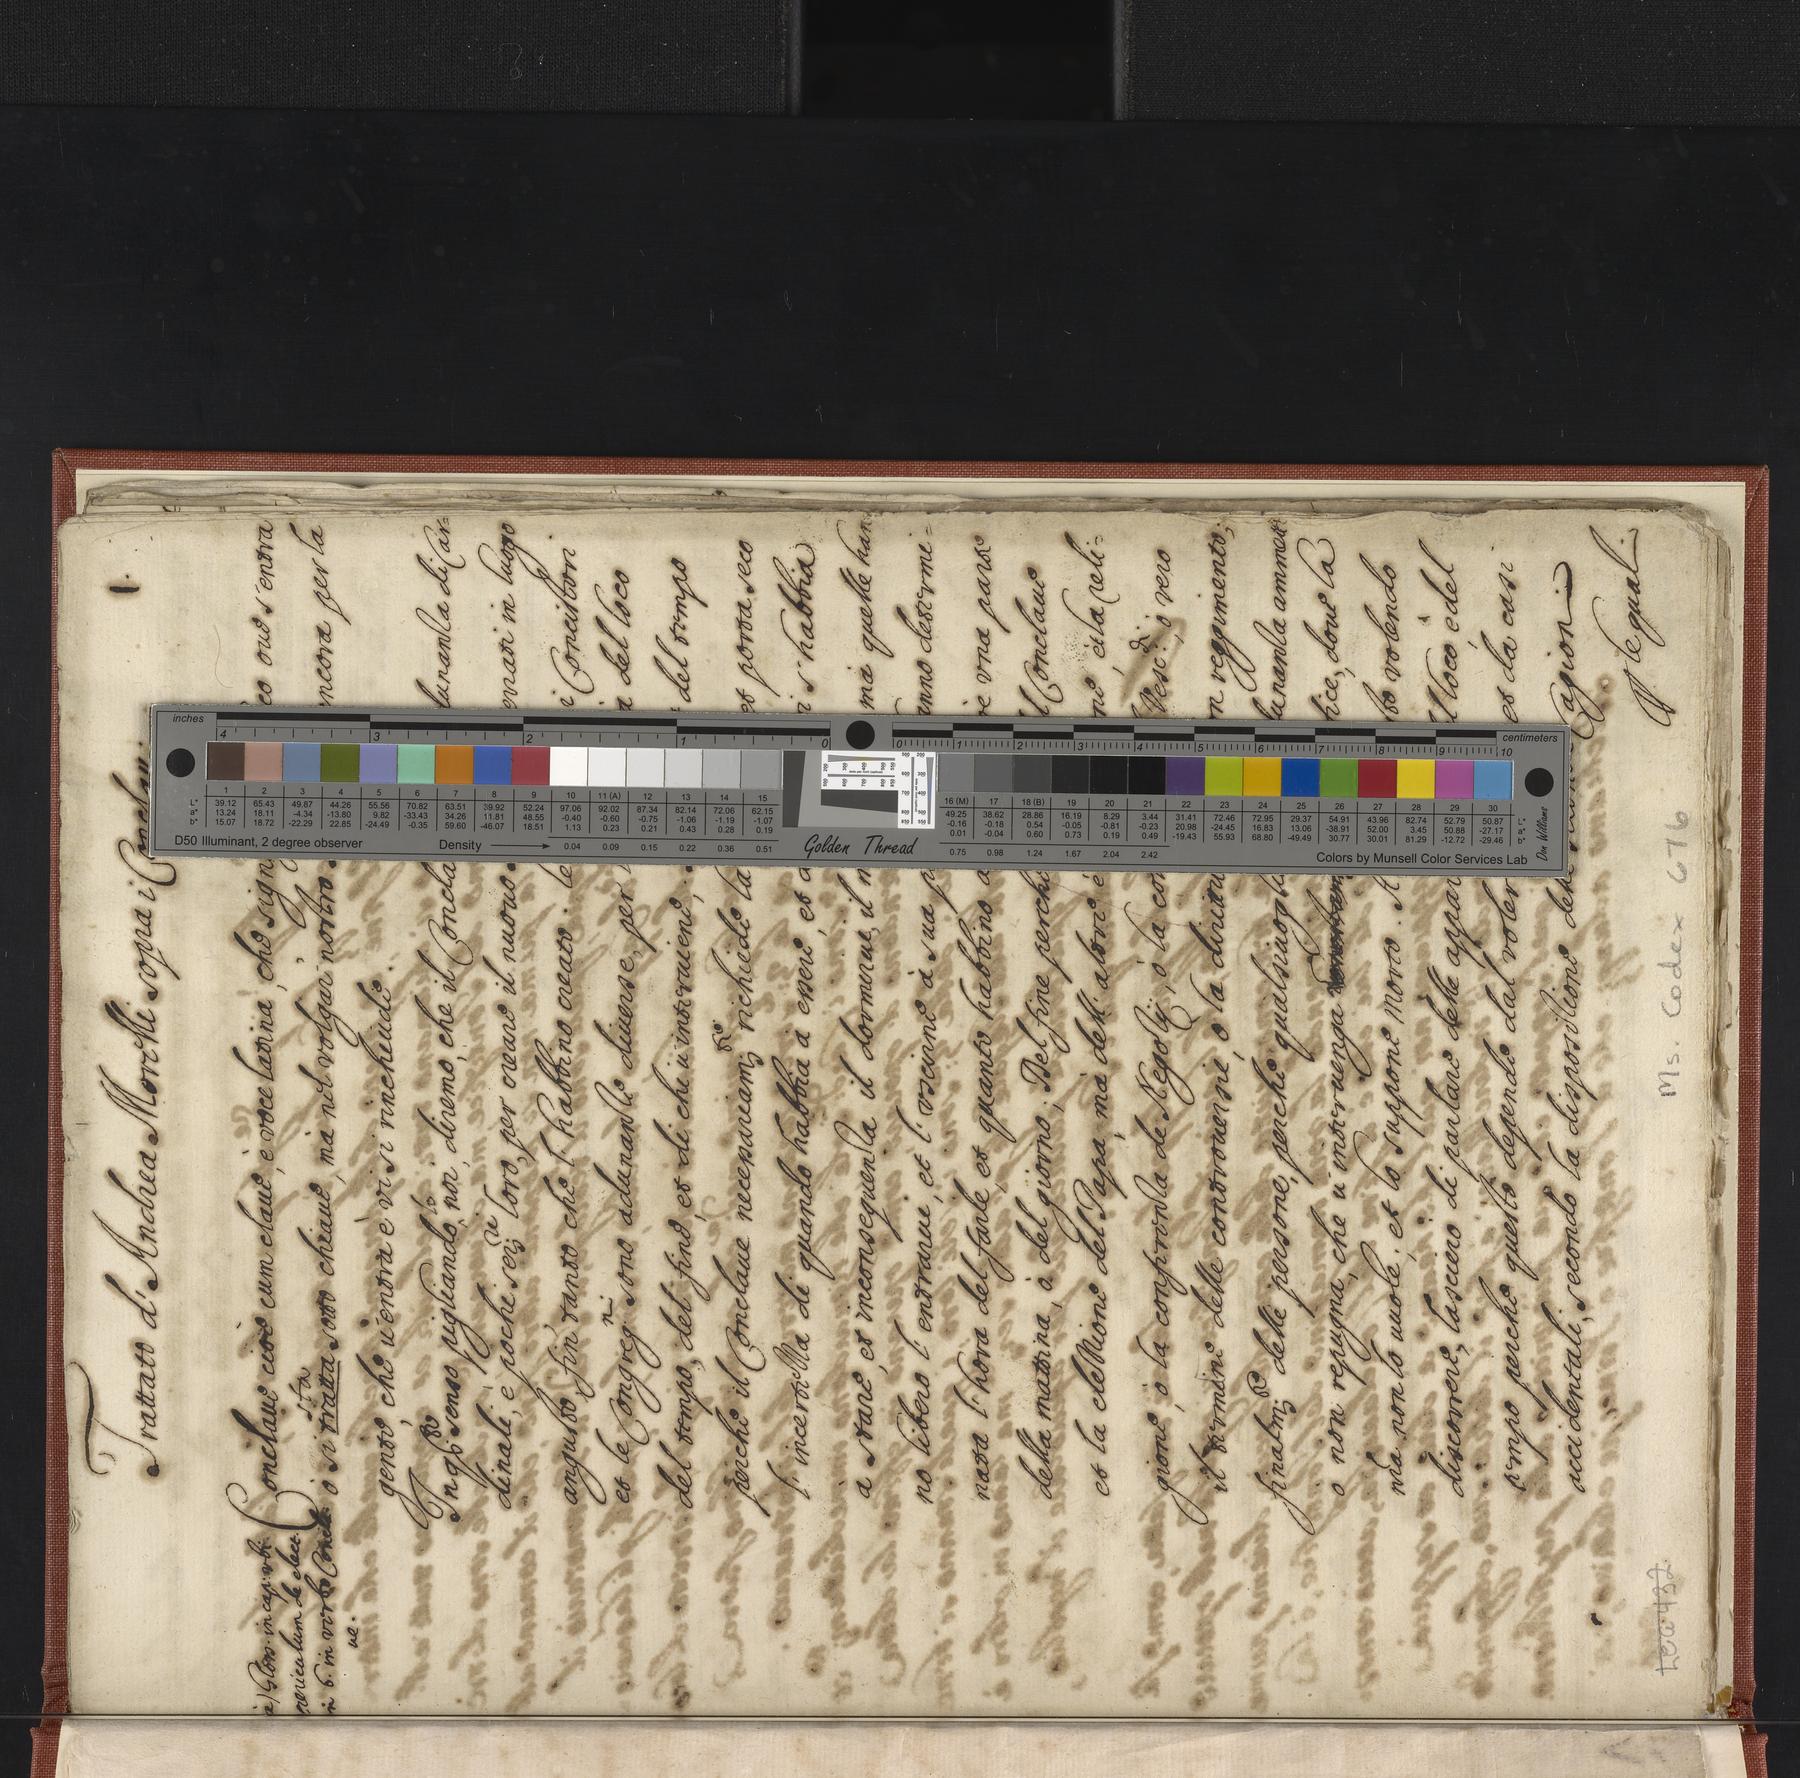 1.
Trattato d'Andrea Morelli sopra i Conclavi.
Conclaue cioè cum claue, è voce latina, che sign co oue s'entra
o si tratta sta sotto chiaue, mà nel volgar nostro ncora per la
gente, che u'entra e vi si rinchiude.
In q.sto senso pigliando lo noi, diremo, che il Concla lunanza di Car=
dinali, e poche ser.u loro, per creare il nuouo errati in luogo
angusto fin tanto che l'habbino creato. le i Concistori
et le Congreg.ni sono adunanze diuerse, per a del loco
del tempo, del fine, et di che u'interuiene, del tempo
perche il Conclaue necessariam.te richiede la et porta seco
l'incertezza di quando habbia a essere, et d i s'habbia
a stare, et inconseguenza il dormirue, il m ma quelle han
no libero l'entrarue, et l'uscirne à sua p anno determi=
nata l'hora del farle, et quanto habbino a re una parte
della matina, ò del giorno. Del fine perche l Conclaue
et la elezzione del Papa, ma delli altori è ne et la reli=
gione, ò la compronta de Negotij, ò la con Vesc: di, o vero
il termine delle controuersie, ò la diritu n reggimento;
finalm.te delle persone, perche qualsiuogl lunanza ammett
o non repugna, che u'interuenga hice, doue la
mia non lo uuole, et lo suppone morto. A ho volendo
discorrere, lasciero di parlare delle appar l loco è del
tempo perche questo depende dal voler et da casi
accidentali, secondo la dispositione dell Cagioni
Le quali
a) Glos. in cap. ubi
periculum de elect.
in 6. in verbo Concla
ue.
Ms. Codex 676
Lea 432
inches
4 3 2 1 0
0 1 2 3 4 5 6 7 8 9 10
centimeters
1 2 3 4 5 6 7 8 9 10 11 (A) 12 13 14 15
L* 39.12 65.43 49.87 44.26 55.56 70.82 63.51 39.92 52.24 97.06 92.02 87.34 82.14 72.06 62.15
a* 13.24 18.11 -4.34 -13.80 9.82 -33.43 34.26 11.81 48.55 -0.40 -0.60 -0.75 -1.06 -1.19 -1.07
b* 15.07 18.72 -22.29 22.85 -24.49 -0.35 59.60 -46.07 18.51 1.13 0.23 0.21 0.43 0.28 0.19
D50 Illuminant, 2 degree observer
Density
0.04 0.09 0.15 0.22 0.36 0.51
Golden Thread
16 (M) 17 18 (B) 19 20 21 22 23 24 25 26 27 28 29 30
49.25 38.62 28.86 16.19 8.29 3.44 31.41 72.46 72.95 29.37 54.91 43.96 82.74 52.79 50.87
-0.16 -0.18 0.54 -0.05 -0.81 -0.23 20.98 -24.45 16.83 13.06 -38.91 52.00 3.45 50.88 -27.17
0.01 -0.04 0.60 0.73 0.19 0.49 -19.43 55.93 68.80 -49.49 30.77 30.01 81.29 -12.72 -29.46
0.75 0.98 1.24 1.67 2.04 2.42
Colors by Munsell Color Services Lab
Don Williams